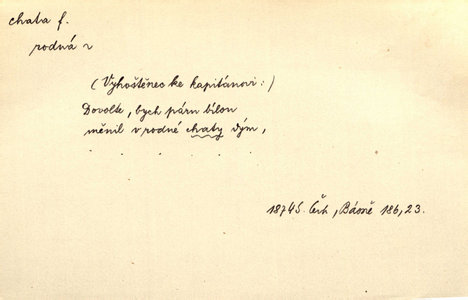 chata f.
rodná ~
(Vyhoštěnec ke kapitánovi:)
Dovolte, bych páru bílou
měnil v rodné chaty dým,
. . . . .
1874 S. Čech, Básně 186,23.